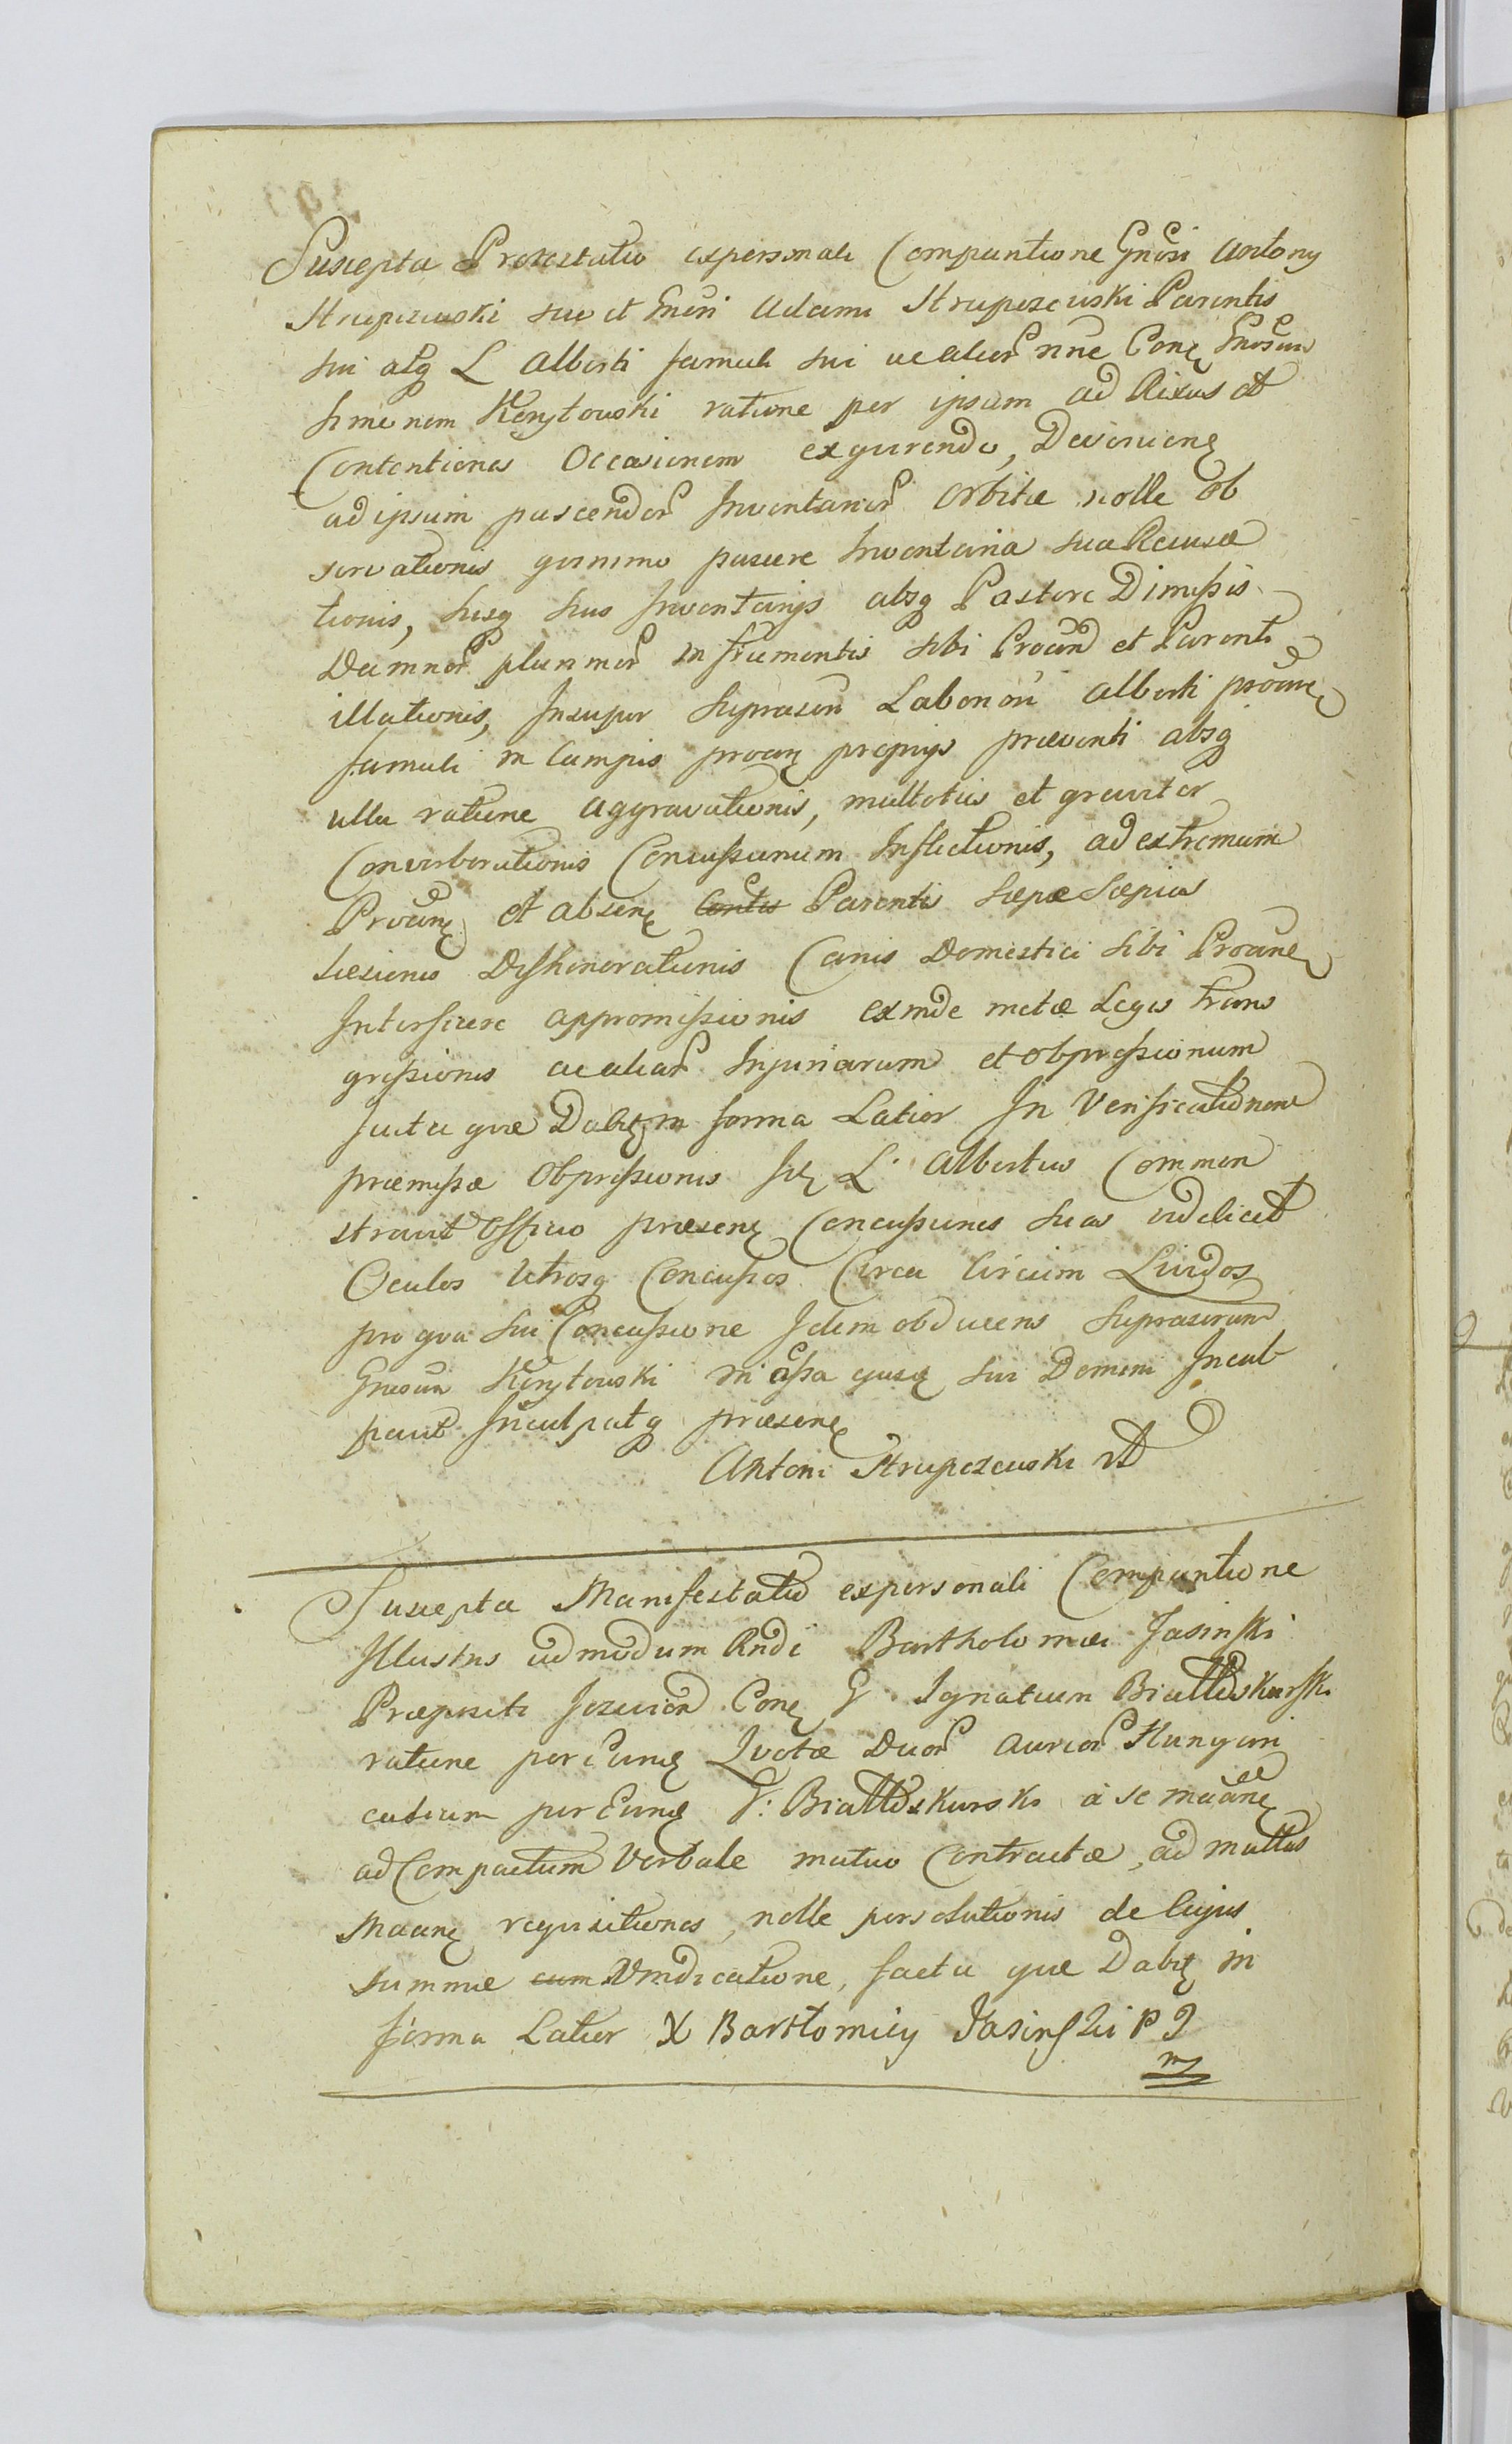 Suscepta Protestatio expersonali Comparitione Gnosi Antony
Strupczewski suo et Gnosi Adami Strupczewski Parentis
sui atq L Alberti famuli sui ac alior nne Conq Gnosum
Simonem Korytowski ratione per ipsum ad Rixas et
Contentiones Occasionem exquirendo, Devenienq
ad ipsum pascendor Inventarior orbitæ nolle ob
servationis quinimo pascere Inventaria sua Recusa
tionis, susq suis Inventarys absq Pastore Dimissis
Damnor plurimor in frumentis sibi Procan et Parenti
illationis, Insuper Suprascri Laboriosi Alberti procanq
famuli in Campis procanq proprys præventi absq
ulla ratione aggravationis, multoties et graviter
Converberationis Concussionum Inflictionis, ad extremum
Procanq et absenq Parentis sæpe sæpius
læsiones Dishonorationis Canis Domestici sibi Procanq
Interficere appromissionis exinde metæ Legis trans
gressionis ac aliar Injuriarum et obpressionum
facta quæ Dabitq in forma Latior In Verificationem
præmissæ obpressionis Itq L. Albertus Common
stravit officio præsenq Concussiones suas videlicet
Oculos utrosq Concussos Circa Circum Lividos
pro qua sui Concussione Idem obducens Suprascrium
Gnosum Korytowski in assa ejusq sui Domini Incul
pavit Inculpatq præsenq
Antoni Strupczewski
Suscepta Manifestatio expersonali Comparitione
Illustris admodum Rndi Bartholomæi Jasinski
Præpositi Conq G Ignatium
ratione per Eunq Quotæ Duor Aureor Hungari
calium per Eunq G: a se maanq
ad Compactum Verbale mutuo Contractæ, ad multas
Maanq requisitiones, nolle persolutionis de Cujus
summæ cum Vindicatione, facta quæ Dabitq in
forma Latior X Bartlomiey Jasinski P J